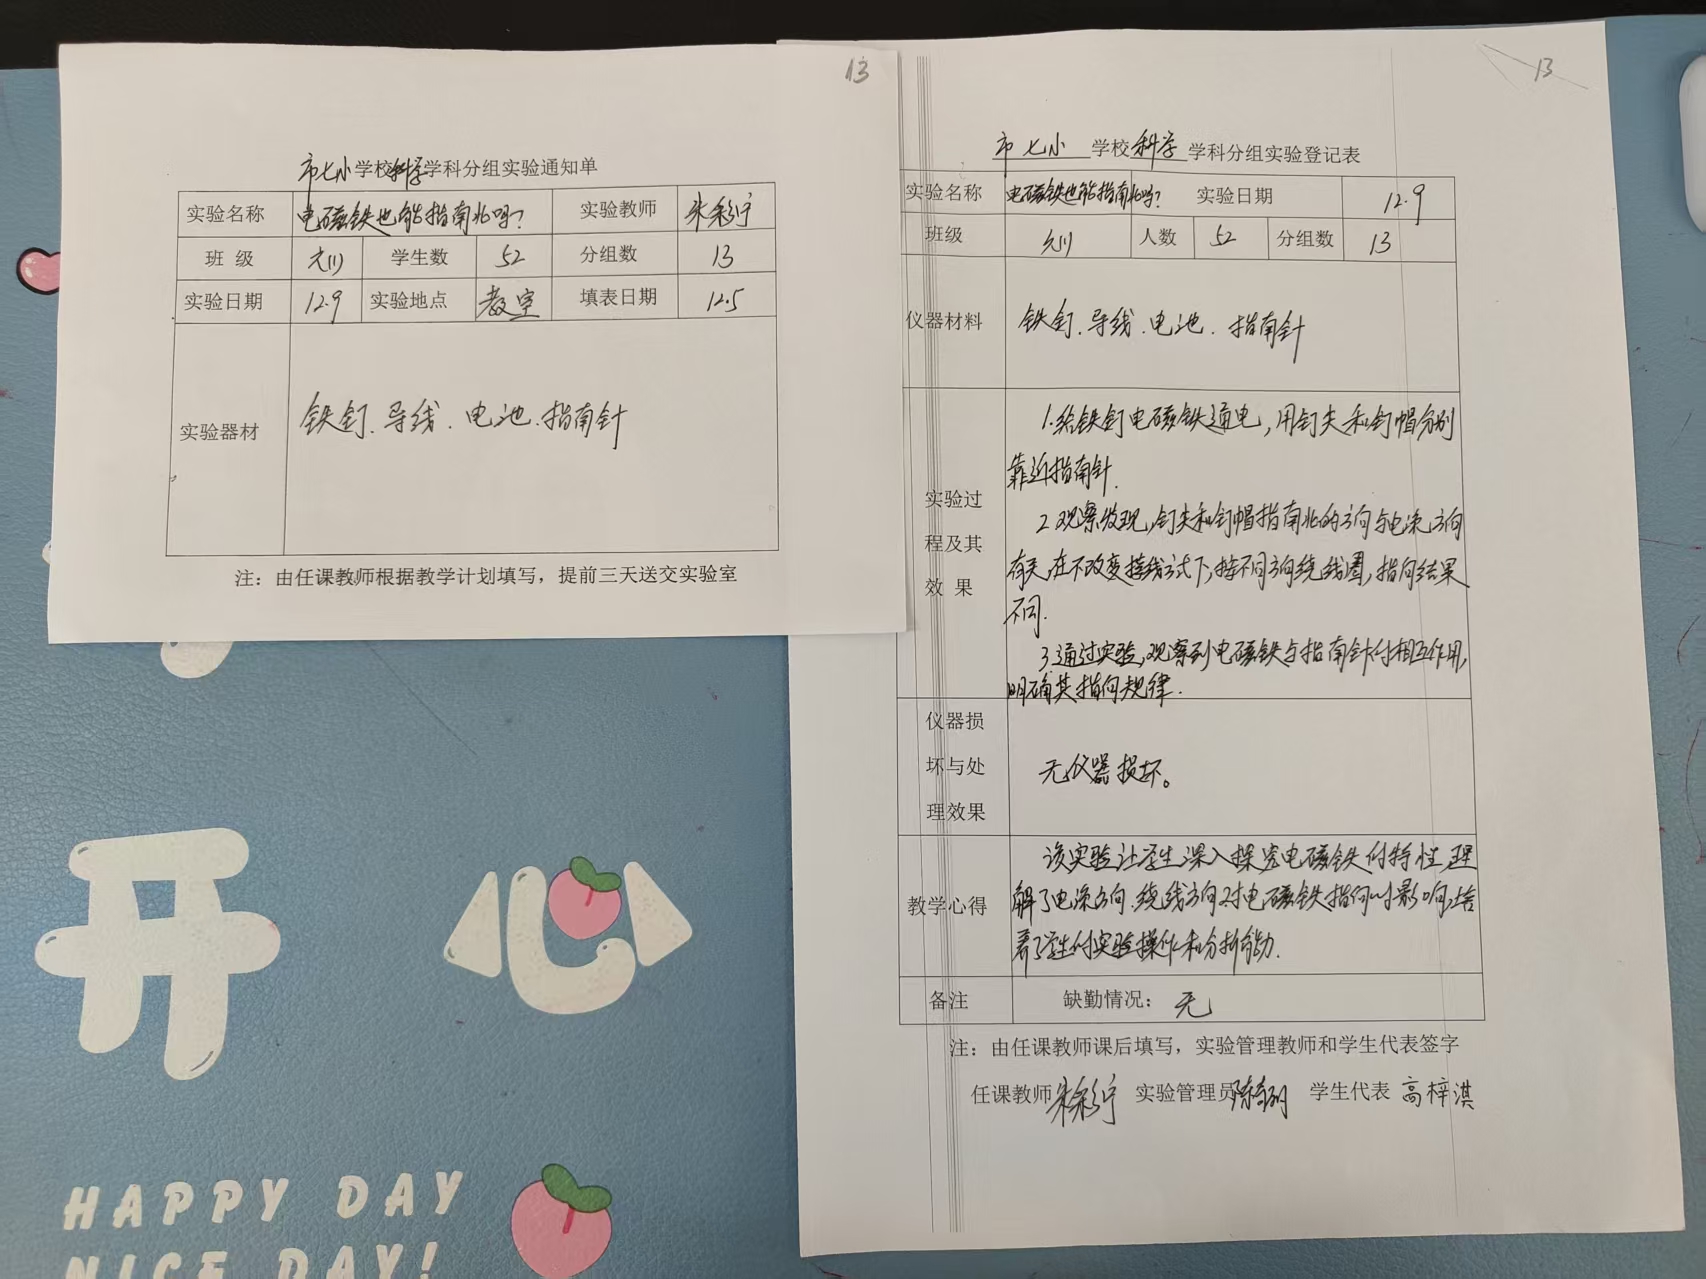 13
市七小学校科学学科分组实验通知单
实验名称 电磁铁也能指南北吗? 实验教师 朱彩宁
班 级 六(1) 学生数 52 分组数 13
实验日期 12.9 实验地点 教室 填表日期 12.5
实验器材 铁钉.导线.电池.指南针
注:由任课教师根据教学计划填写,提前三天送交实验室
13
市七小 学校科学 学科分组实验登记表
实验名称 电磁铁也能指南北吗? 实验日期 12.9
班级 六(1) 人数 52 分组数 13
仪器材料 铁钉.导线.电池.指南针
实验过
程及其
效 果
1.给铁钉电磁铁通电,用钉尖和钉帽分别
靠近指南针.
2.观察发现,钉尖和钉帽指南北的方向与电流方向
有关,在不改变接线方式下,按不同方向绕线圈,指向结果
不同.
3.通过实验,观察到电磁铁与指南针的相互作用,
明确其指向规律.
仪器损
坏与处
理效果
无仪器损坏。
教学心得
该实验让学生深入探究电磁铁的特性,理
解了电流方向.绕线方向对电磁铁指向的影响,培
养了学生的实验操作和分析能力.
备注 缺勤情况: 无
注:由任课教师课后填写,实验管理教师和学生代表签字
任课教师 朱彩宁 实验管理员 学生代表 高梓淇
开心
HAPPY DAY
NICE DAY!